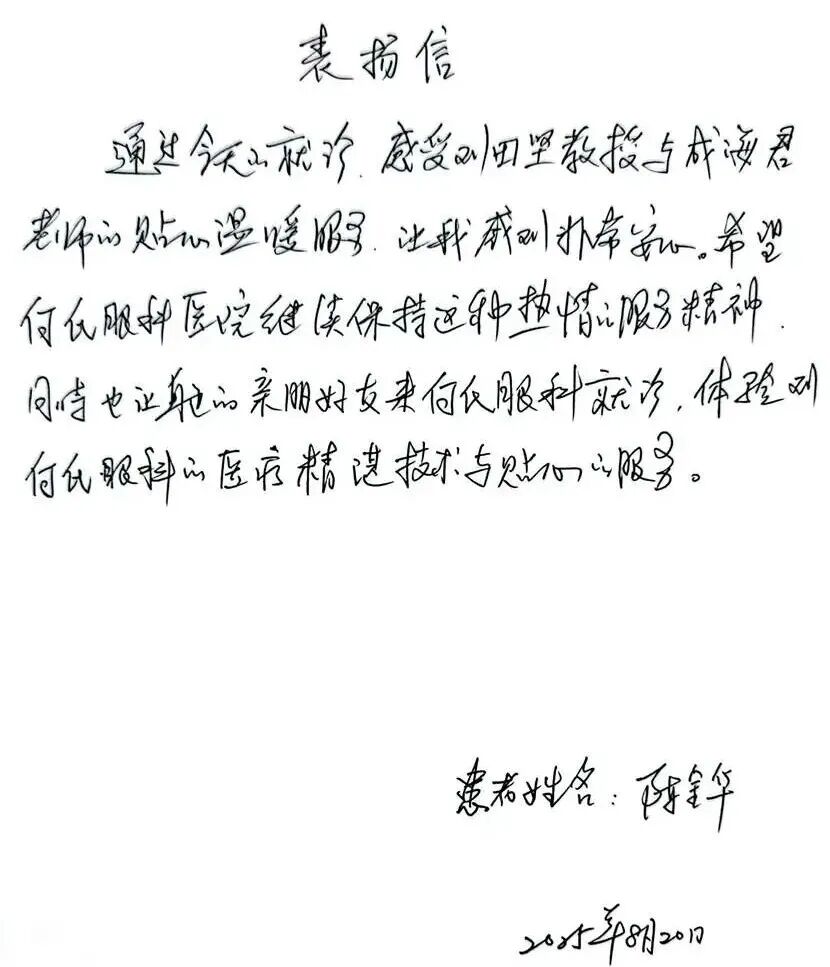 表扬信
通过今天的就诊,感受到田坚教授与成海君
老师的贴心温暖服务,让我感到非常安心。希望
何氏眼科医院继续保持这种热情的服务精神,
同时也让身边的亲朋好友来何氏眼科就诊,体验到
何氏眼科的医疗精湛技术与贴心的服务。
患者姓名:陈金华
2025年8月20日